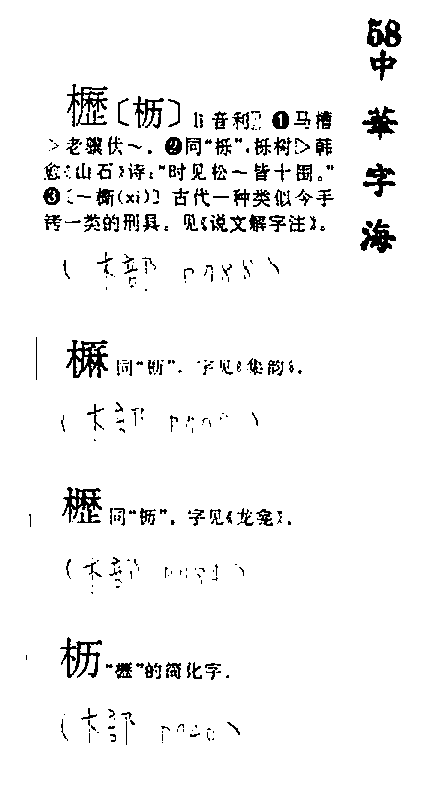 58
中華字海
櫪〔枥〕 lì 音利 ❶马槽
▷老骥伏～。❷同“栎”,栎树▷韩
愈《山石》诗:“时见松～皆十围。”
❸〔～㯕(xī)〕古代一种类似今手
铐一类的刑具。见《说文解字注》。
(木部 p988)
同“枥”。字见《集韵》。
(木部
櫪 同“枥”。字见《龙龛》。
(木部
枥 “櫪”的简化字。
(木部 p940)